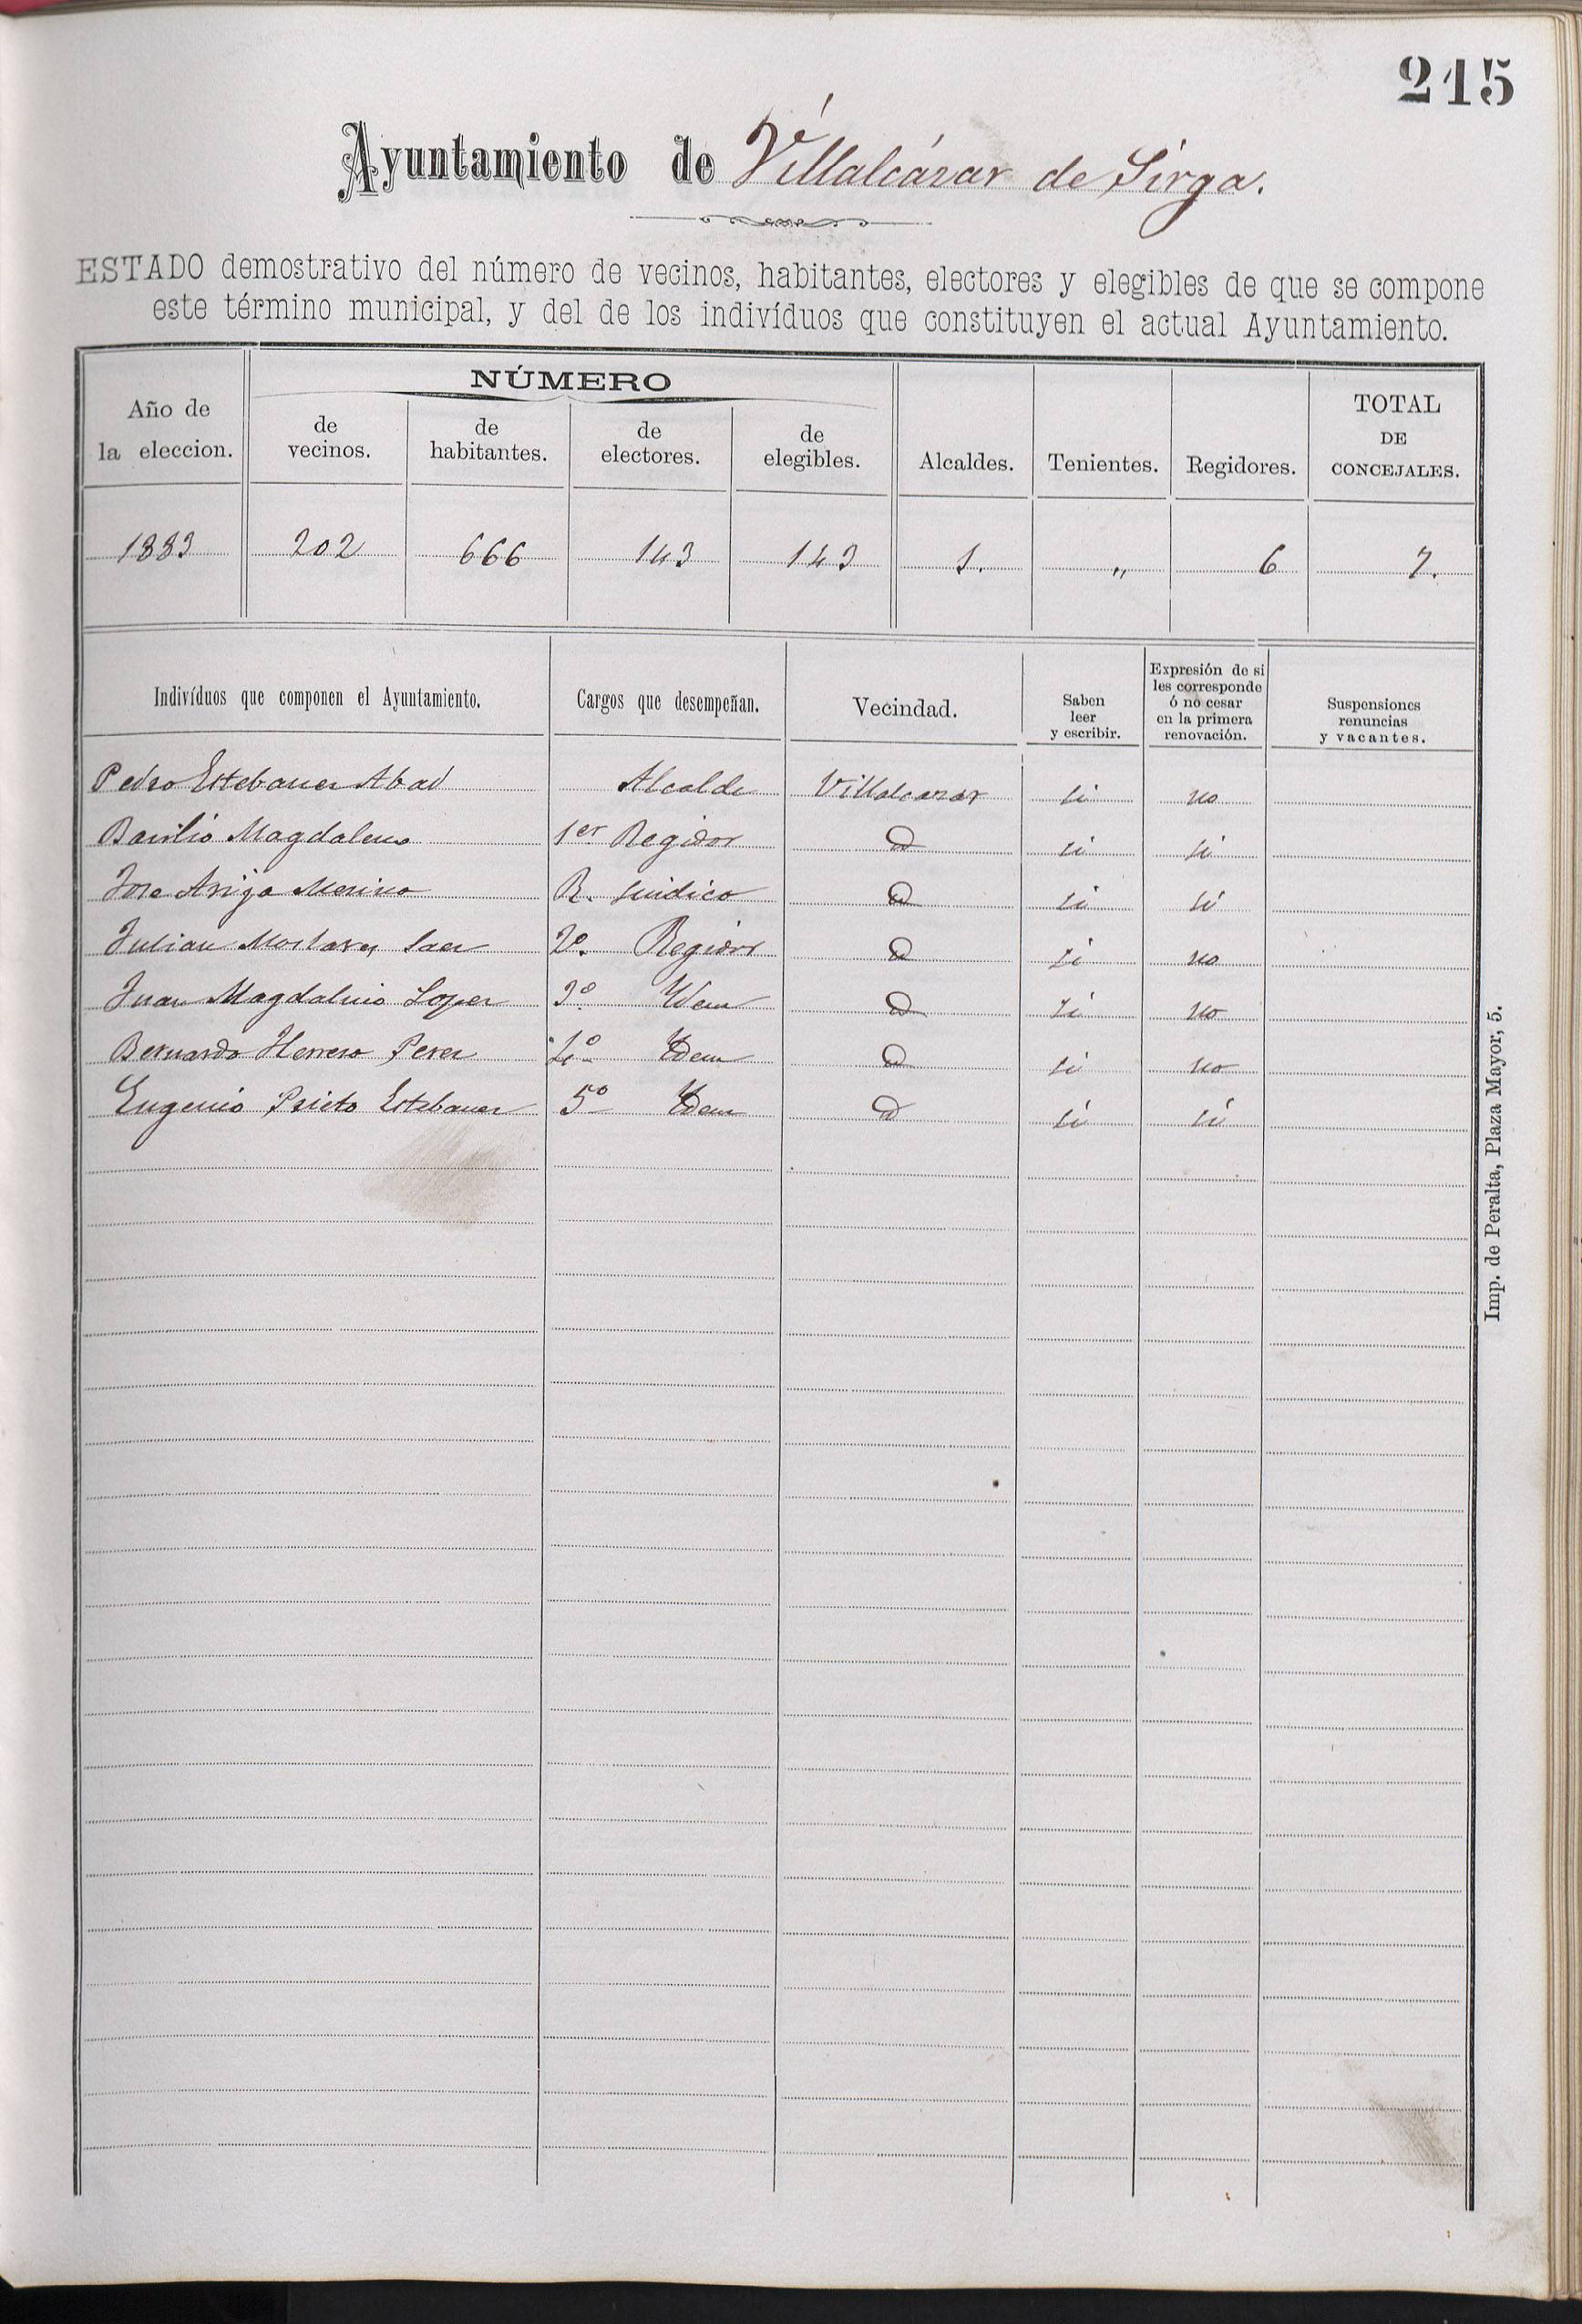 215
Ayuntamiento de Villalcázar de Sirga.
ESTADO demostrativo del número de vecinos, habitantes, electores y elegibles de que se compone
este término municipal, y del de los indivíduos que constituyen el actual Ayuntamiento.
Año de la eleccion. NÚMERO de vecinos. de habitantes. de electores. de elegibles. Alcaldes. Tenientes. Regidores. TOTAL DE CONCEJALES.
1883 202 666 143 143 1. „ 6 7.
Indivíduos que componen el Ayuntamiento. Cargos que desempeñan. Vecindad. Saben leer y escribir. Expresión de si les corresponde ó no cesar en la primera renovación. Suspensiones renuncias y vacantes.
Pedro Estebanez Abad Alcalde Villalcazar si no
Basilio Magdaleno 1er Regidor D si si
Jose Arija Merino R. Sindico D si si
Julian Mostaza Saez 2º Regidor D si no
Juan Magdaleno Lopez 3º Idem D si no
Bernardo Herrero Perez 4º Idem D si no
Eugenio Prieto Estebanez 5º Idem D si si
Imp. de Peralta, Plaza Mayor, 5.